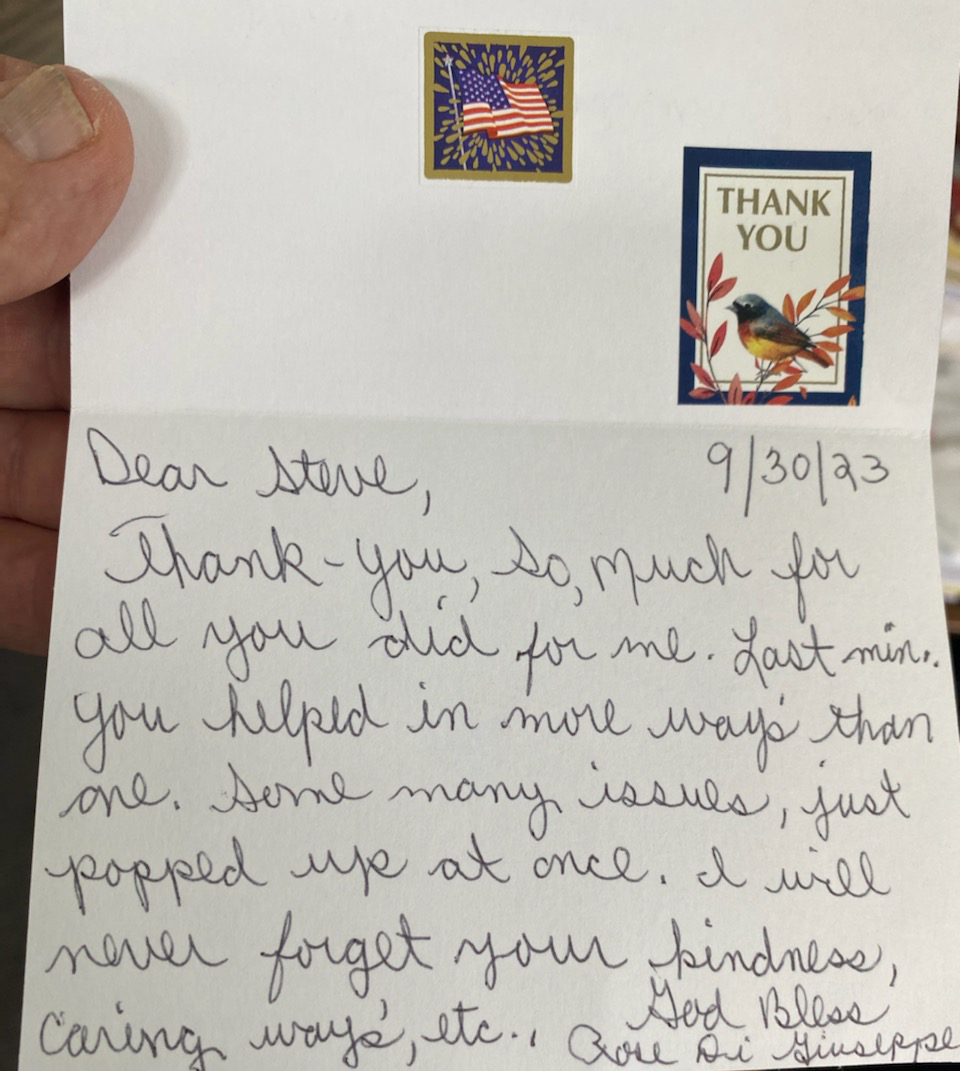 THANK
YOU
Dear Steve, 9/30/23
Thank-you, so, much for
all you did for me. Last min..
you helped in more way's than
one. Some many issues, just
popped up at once. I will
never forget your kindness,
Caring way's, etc..
God Bless
Rose Di Giuseppe